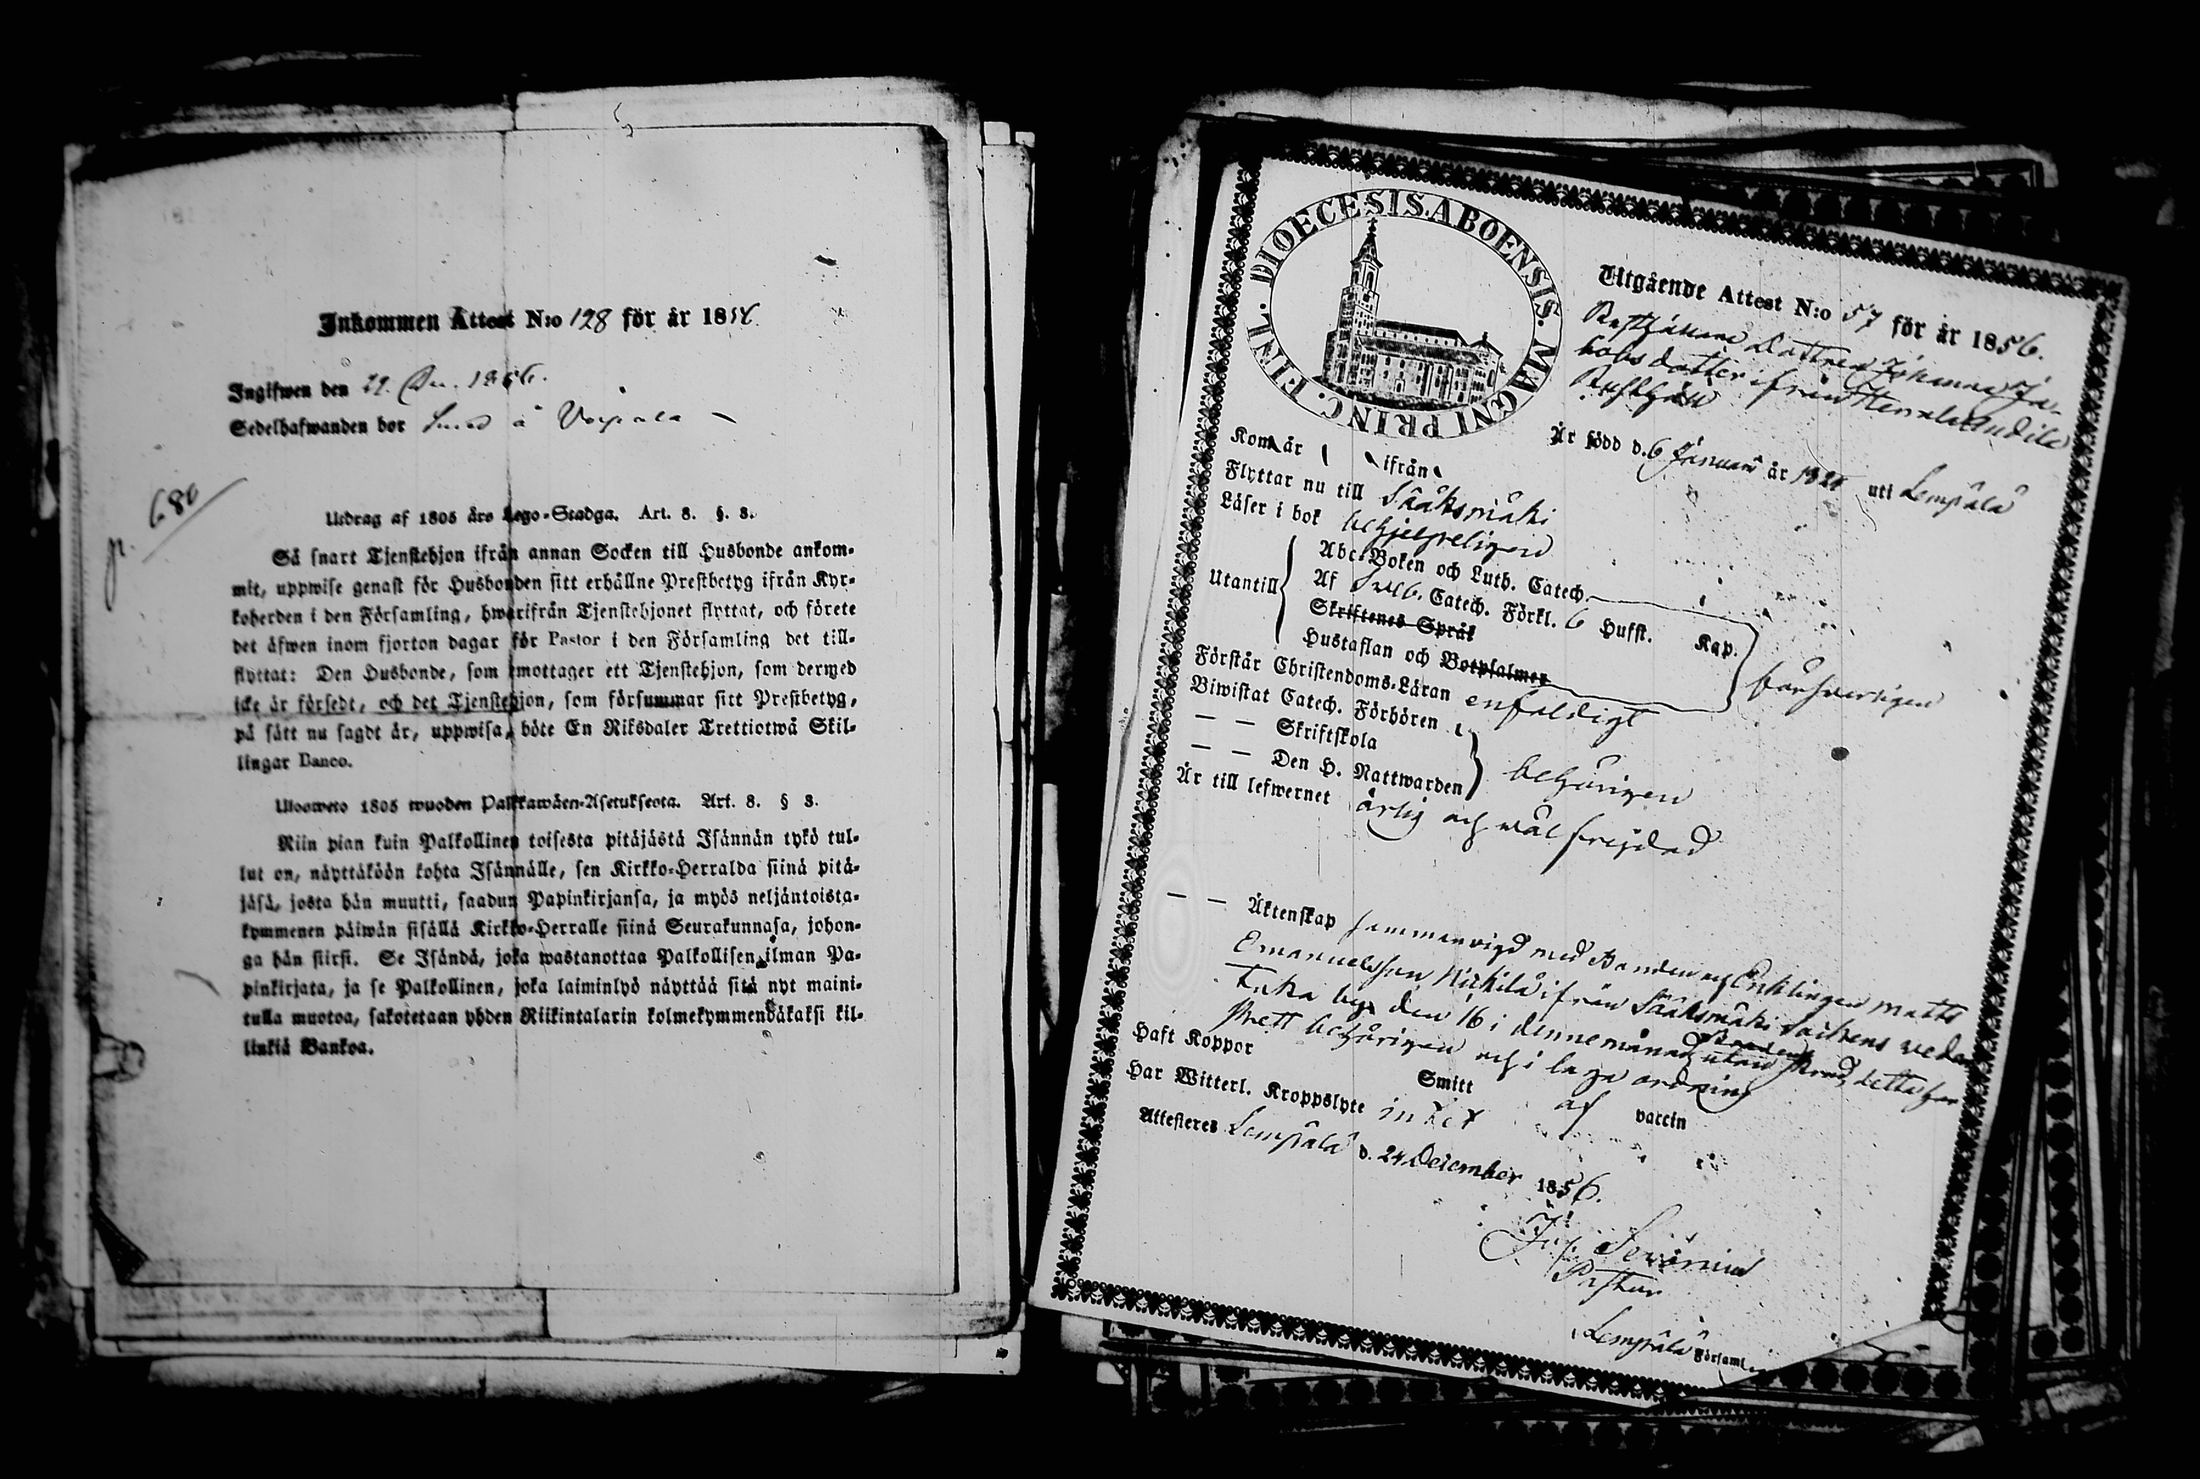 Inkommen Attest N:o 128 för år 1856
Ingifwen den 29. Dec. 1856.
Sedelhafwanden bor
p. 680
Utdrag af 1805 års Lego-Stadga. Art. 8. §. 8.
Så snart Tjenstehjon ifrån annan Socken till Husbonde ankom-
mit, uppwise genast för Husbonden sitt erhållne Prestbetyg ifrån Kyr-
koherden i den Församling, hwarifrån Tjenstehjonet flyttat, och förete
det äfwen inom fjorton dagar för Pastor i den Församling det till-
flyttat: Den Husbonde, som emottager ett Tjenstehjon, som dermed
icke är försedt, och det Tjenstehjon, som försummar sitt Prestbetyg,
på sätt nu sagdt är, uppwisa, böte En Riksdaler Trettiotwå Skil-
lingar Banco.
Ulosweto 1805 wuoden Palkkawäen-Asetuksesta. Art. 8. § 8.
Niin pian kuin Palkollinen toisesta pitäjästä Isännän tykö tul-
lut on, näyttäköön kohta Isännälle, sen Kirkko-Herralda siinä pitä-
jäsä, josta hän muutti, saadun Papinkirjansa, ja myös neljäntoista-
kymmenen päiwän sisällä Kirkko-Herralle siinä Seurakunnasa, johon-
ga hän siirsi. Se Isändä, joka wastanottaa Palkollisen ilman Pa-
pinkirjata, ja se Palkollinen, joka laiminlyö näyttää sitä nyt maini-
tulla muotoa, sakotetaan yhden Riikintalarin kolmekymmendäkaksi kil-
linkiä Bankoa.
DIOECESIS. ABOENSIS. MAGNI PRINC. FINL.
Utgående Attest N:o 57 för år 1856.
Dottren Johanna Ja-
kobsdotter ifrån Herrala
Är född d. 6 Januari år uti Lempälä
Kom år ifrån
Flyttar nu till Sääksmäki
Läser i bok behjelpeligen
Utantill
Abc-Boken och Luth. Catech.
Af Sveb. Catech. Förkl. 6 Hufst. Kap.
Skriftenes Språk
Hustaflan och Botpsalmer
Förstår Christendoms-Läran enfaldigt
Biwistat Catech. Förhören
— — Skriftskola
— — Den H. Nattwarden behörigen
Är till lefwernet ärlig och wälfrejdad
— — Äktenskap sammanvigd med Bonden och Enklingen Matts
Emanuelsson ifrån Sääksmäki Sockens
by den 16 i denne månad utan
behörigen och i laga ordning
Haft Koppor Smitt af vaccin
Har Witterl. Kroppslyte intet
Attesteras Lempälä d. 24 December 1856.
Pastor
Lempälä Församl.